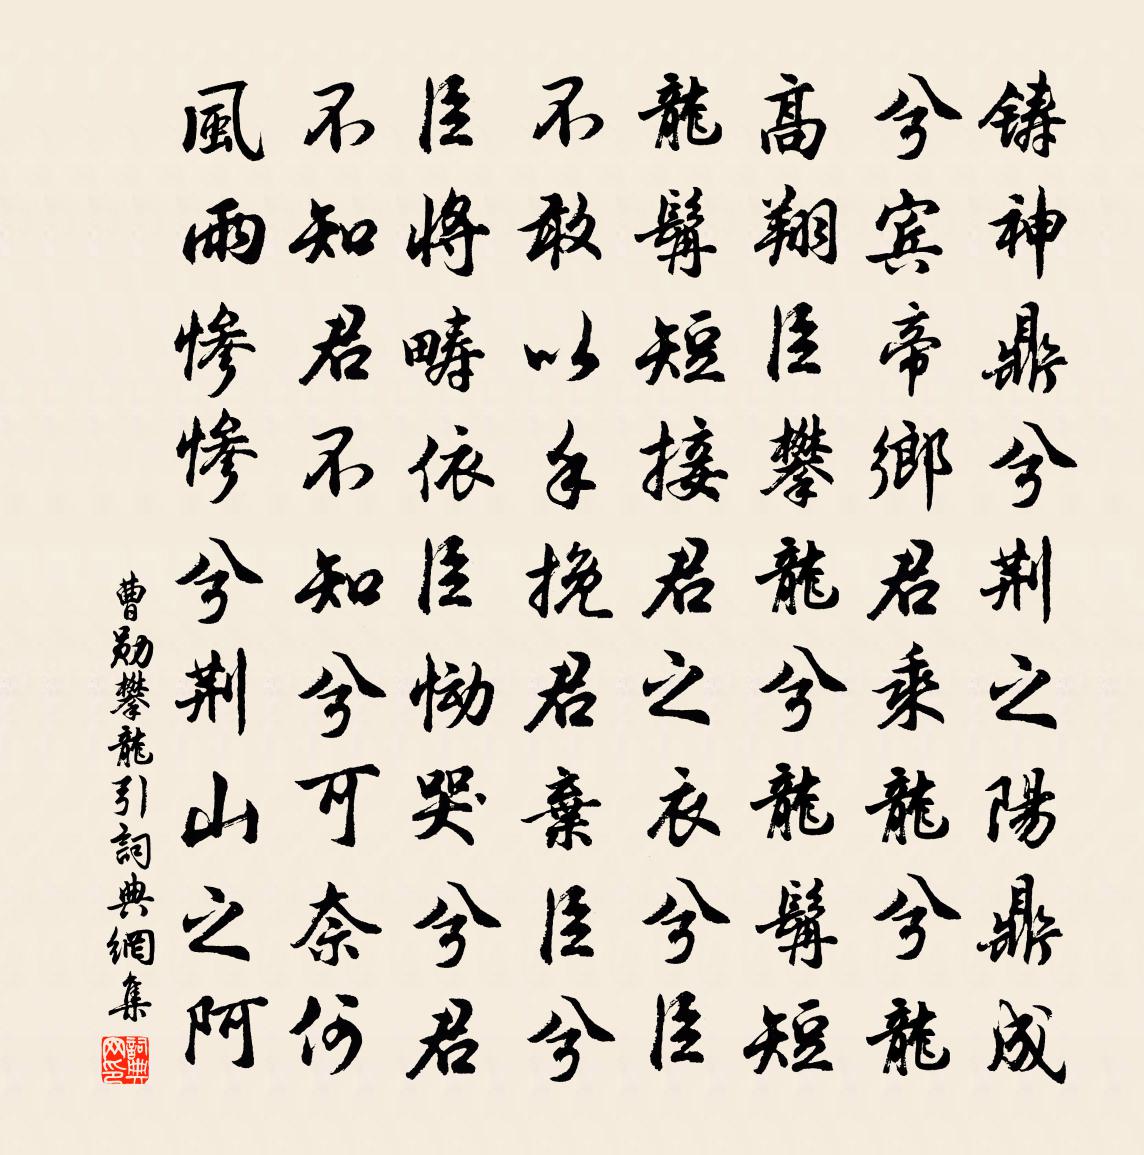 鑄神鼎兮荆之陽鼎成
兮宾帝鄉君乘龍兮龍
高翔臣攀龍兮龍髯短
龍髯短接君之衣兮臣
不敢以手挽君棄臣兮
臣將疇依臣慟哭兮君
不知君不知兮可奈何
風雨慘慘兮荆山之阿
曹勛攀龍引詞典網集
詞典网印